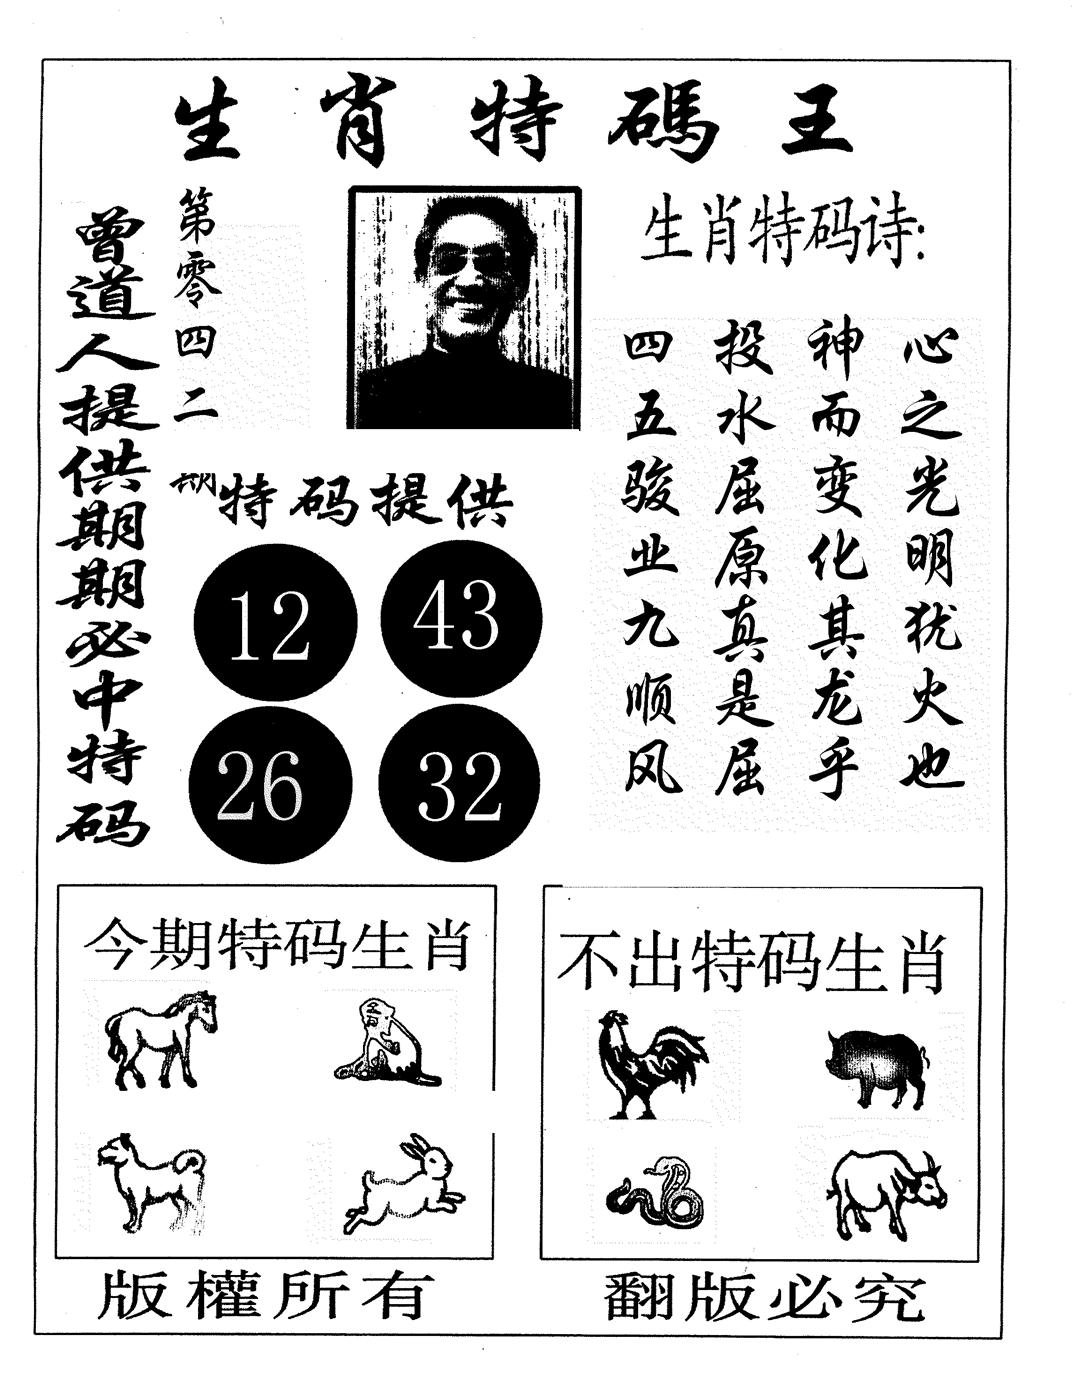 生肖特碼王
曾道人提供期期必中特码
第零四二期
特码提供
12 43
26 32
生肖特码诗:
心之光明犹火也
神而变化其龙乎
投水屈原真是屈
四五骏业九顺风
今期特码生肖
不出特码生肖
版權所有
翻版必究